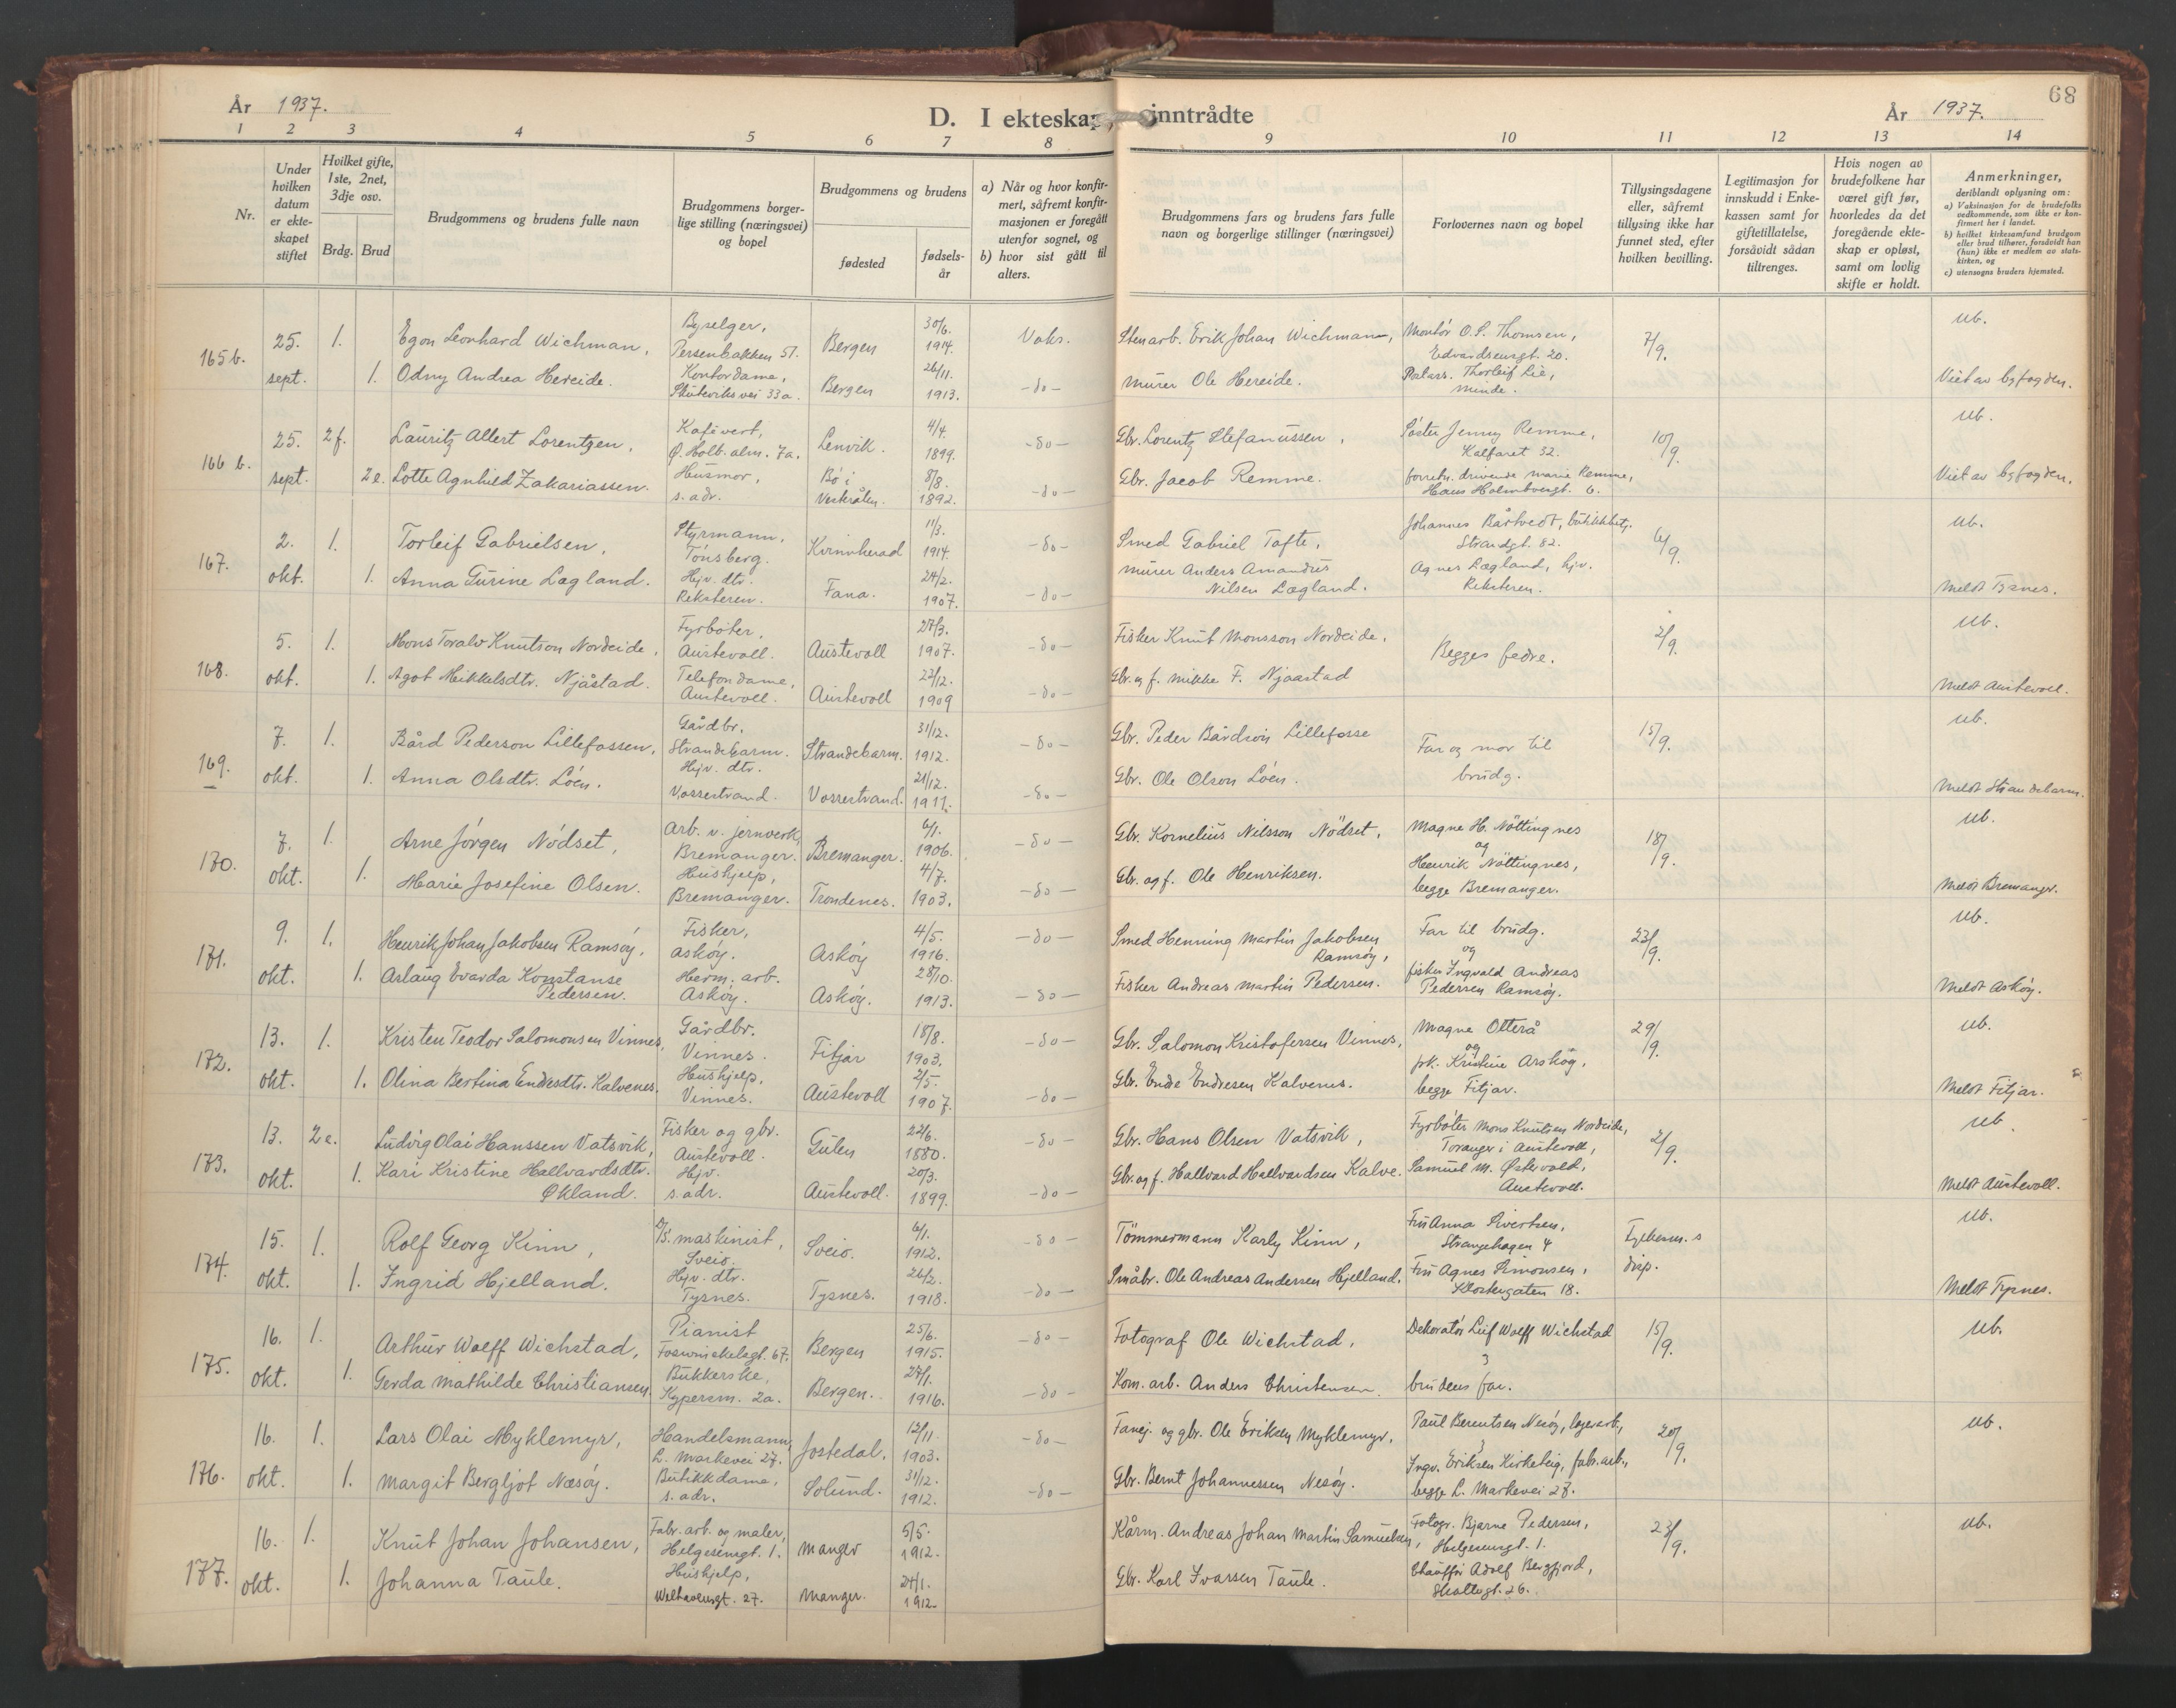 År 1937.
D. I ekteskap inntrådte
År 1937.
68
1 2 3 4 5 6 7 8 9 10 11 12 13 14
Nr.
Under hvilken datum er ekteskapet stiftet
Hvilket gifte, 1ste, 2net, 3dje osv.
Brdg. Brud
Brudgommens og brudens fulle navn
Brudgommens borgerlige stilling (næringsvei) og bopel
Brudgommens og brudens
fødested
fødselsår
a) Når og hvor konfirmert, såfremt konfirmasjonen er foregått utenfor sognet, og
b) hvor sist gått til alters.
Brudgommens fars og brudens fars fulle navn og borgerlige stillinger (næringsvei)
Forlovernes navn og bopel
Tillysingsdagene eller, såfremt tillysing ikke har funnet sted, efter hvilken bevilling.
Legitimasjon for innskudd i Enkekassen samt for giftetillatelse, forsåvidt sådan tiltrenges.
Hvis nogen av brudefolkene har været gift før, hvorledes da det foregående ekteskap er opløst, samt om lovlig skifte er holdt.
Anmerkninger,
deriblandt oplysning om:
a) Vaksinasjon for de brudefolks vedkommende, som ikke er konfirmert her i landet.
b) hvilket kirkesamfund brudgom eller brud tilhører, forsåvidt han (hun) ikke er medlem av statskirken, og
c) utensogns bruders hjemsted.
165b. 25. sept. 1. Egon Leonhard Wichman, Byselger, Persenbakken 51. Bergen 30/6. 1914. Vaks. Stenarb. Erik Johan Wichmann, Montör O. S. Thomsen, Edvardsensgt. 20. 7/9. ub.
1. Odny Andrea Hereide. Kontordame, Skuteviksvei 33a. Bergen 26/11. 1913. -do- Murer Ole Hereide. Thorleif Lie, Minde. Viet av byfogden.
166 b. 25. sept. 2 f. Lauritz Allert Lorentzen, Kafévert, Ø. Holb. alm. 7a. Lenvik. 4/4. 1899. -do- Gbr. Lorentz Stefanussen, Söster Jenny Remme, Kalfaret 32. 10/9. ub.
2 e. Lotte Agnhild Zakariassen. Husmor, s. adr. Bö i Vesterålen 8/8. 1892. -do- Gbr. Jacob Remme. forretn. drivende Marie Remme, Hans Holmboesgt. 6. Viet av byfogden.
167. 2. okt. 1. Torleif Gabrielsen, Styrmann, Tönsberg. Kvinnherad 11/3. 1914. -do- Smed Gabriel Tofte, Johannes Bårtvedt, butikkbetj. Strandgt. 82. 6/9. ub.
1. Anna Gurine Lægland. Hjv. dtr. Reksteren. Fana. 24/2. 1907. -do- Murer Anders Amandus Nilsen Lægland. Agnes Lægland, hjv. Reksteren. Meldt Tysnes.
168. 5. okt. 1. Mons Toralv Knutson Nordeide, Fyrböter, Austevoll. Austevoll 27/3. 1907. -do- Fisker Knut Monsson Nordeide, Begges fedre. 2/9. ub.
1. Agot Mikkelsdtr. Njåstad. Telefondame, Austevoll. Austevoll 22/12. 1909 -do- Gbr. og f. Mikke F. Njaastad Meldt Austevoll.
169. 7. okt. 1. Bård Pederson Lillefossen, Gårdbr. Strandebarm. Strandebarm. 31/12. 1912. -do- Gbr. Peder Bårdson Lillefosse Far og mor til brudg. 15/9. ub.
1. Anna Olsdtr. Löen. Hjv. dtr. Vossestrand. Vossestrand. 21/12. 1911. -do- Gbr. Ole Olson Löen. Meldt Strandebarm.
170. 7. okt. 1. Arne Jörgen Nödset, Arb. v. jernverk, Bremanger. Bremanger. 6/1. 1906. -do- Gbr. Kornelius Nilsson Nödset, Magne H. Nöttingnes og 18/9. ub.
1. Marie Josefine Olsen. Hushjelp, Bremanger. Trondenes. 4/7. 1903. -do- Gbr. og f. Ole Henriksen. Henrik Nöttingnes, begge Bremanger. Meldt Bremanger.
171. 9. okt. 1. Henrik Johan Jakobsen Ramsöy, Fisker, Asköy. Asköy 4/5. 1916. -do- Smed Henning Martin Jakobsen Ramsöy, Far til brudg. og 23/9. ub.
1. Aslaug Evarda Konstanse Pedersen. Herm. arb. Asköy. Asköy. 28/10. 1913. -do- Fisker Andreas Martin Pedersen. fisker Ingvald Andreas Pedersen Ramsöy. Meldt Asköy.
172. 13. okt. 1. Kristen Teodor Salomonsen Vinnes, Gårdbr. Vinnes. Fitjar 18/8. 1903. -do- Gbr. Salomon Kristofersen Vinnes, Magne Otterå og 29/9. ub.
1. Olina Bertina Endesdtr. Kalvenes. Hushjelp, Vinnes. Austevoll 2/5. 1907. -do- Gbr. Ende Endresen Kalvenes. frk. Kristine Arskög, begge Fitjar. Meldt Fitjar.
173. 13. okt. 2 e. Ludvig Olai Hanssen Vatsvik, Fisker og gbr. Austevoll. Gulen 22/6. 1880. -do- Gbr. Hans Olsen Vatsvik, Fyrböter Mons Knutsen Nordeide, Toranger i Austevoll, 2/9. ub.
1. Kari Kristine Hallvardsdtr. Økland. Hjv. s. adr. Austevoll. 20/3. 1899. -do- Gbr. og f. Hallvard Hallvardsen Kalve. Samuel M. Østervold, Austevoll. Meldt Austevoll.
174. 15. okt. 1. Rolf Georg Kinn, D/S. maskinist, Sveio. Sveio. 6/1. 1912. -do- Tömmermann Karly Kinn, Fru Anna Sivertsen, Strangehagen 4 Fylkesm. s disp. ub.
1. Ingrid Hjelland. Hjv. dtr. Tysnes. Tysnes. 26/2. 1918. -do- Småbr. Ole Andreas Andersen Hjelland. Fru Agnes Simonsen, Klostergaten 18. Meldt Tysnes.
175. 16. okt. 1. Arthur Wolff Wichstad, Pianist Fosswinckelsgt. 67. Bergen 25/6. 1915. -do- Fotograf Ole Wichstad, Dekoratör Leif Wolff Wichstad 15/9. ub.
1. Gerda Mathilde Christiansen. Bukkerske, Kypersm. 2a. Bergen. 27/1. 1916. -do- Kom. arb. Anders Christensen. brudens far.
176. 16. okt. 1. Lars Olai Myklemyr, Handelsmann, L. Markevei 27. Jostedal. 12/11. 1903. -do- Fanej. og gbr. Ole Eriksen Myklemyr, Paul Berentsen Nesöy, lagerarb., 20/9. ub.
1. Margit Bergljot Næsöy. Butikkdame, s. adr. Solund. 31/12. 1912. -do- Gbr. Bernt Johannessen Nesöy. Ingv. Eriksen Kirkeleig, fabr. arb., begge L. Markevei 27.
177. 16. okt. 1. Knut Johan Johansen, Fabr. arb. og maler, Helgesensgt. 1. Manger 5/5. 1912. Kårm. Andreas Johan Martin Samuelsen, Fotogr. Bjarne Pedersen, Helgesensgt. 1. 23/9. ub.
1. Johanna Taule. Hushjelp, Welhavensgt. 27. Manger. 24/1. 1912. Gbr. Karl Ivarsen Taule. Chaufför Adolf Bergfjord, Skottegt. 26.